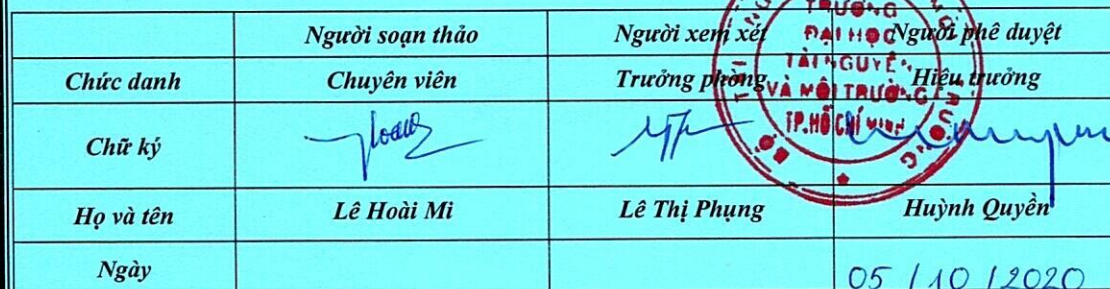 Người soạn thảo Người xem xét Người phê duyệt
Chức danh Chuyên viên Trưởng phòng Hiệu trưởng
Chữ ký
Họ và tên Lê Hoài Mi Lê Thị Phụng Huỳnh Quyền
Ngày 05/10/2020
TRƯỜNG
ĐẠI HỌC
TÀI NGUYÊN
VÀ MÔI TRƯỜNG
TP.HỒ CHÍ MINH